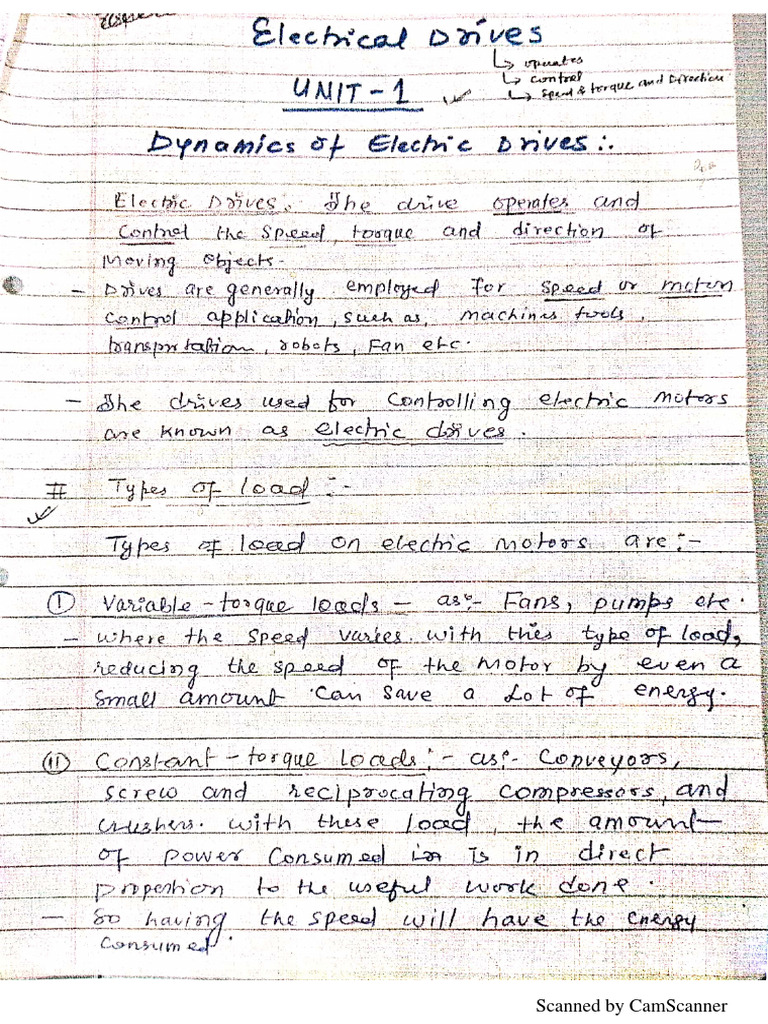 Electrical Drives
↳ operates
↳ control
↳ Speed & torque and Direction
UNIT-1
Dynamics of Electric Drives:.
Electric Drives. The drive operates and
Control the Speed, torque and direction of
Moving objects.
- Drives are generally employed for speed or motion
Control application, such as, machines tools,
transportation, robots, Fan etc.
- The drives used for Controlling electric motors
are known as electric drives.
# Types of load :-
Types of load on electric motors are:-
(I) Variable-torque loads - as:- Fans, pumps etc.
- where the speed varies with this type of load,
reducing the speed of the motor by even a
small amount can save a Lot of energy.
(II) Constant-torque Loads:- as:- Conveyors,
screw and reciprocating compressors, and
crushers. with these load, the amount
of power Consumed is in direct
proportion to the useful work done.
- So having the speed will have the energy
Consumed.
Scanned by CamScanner